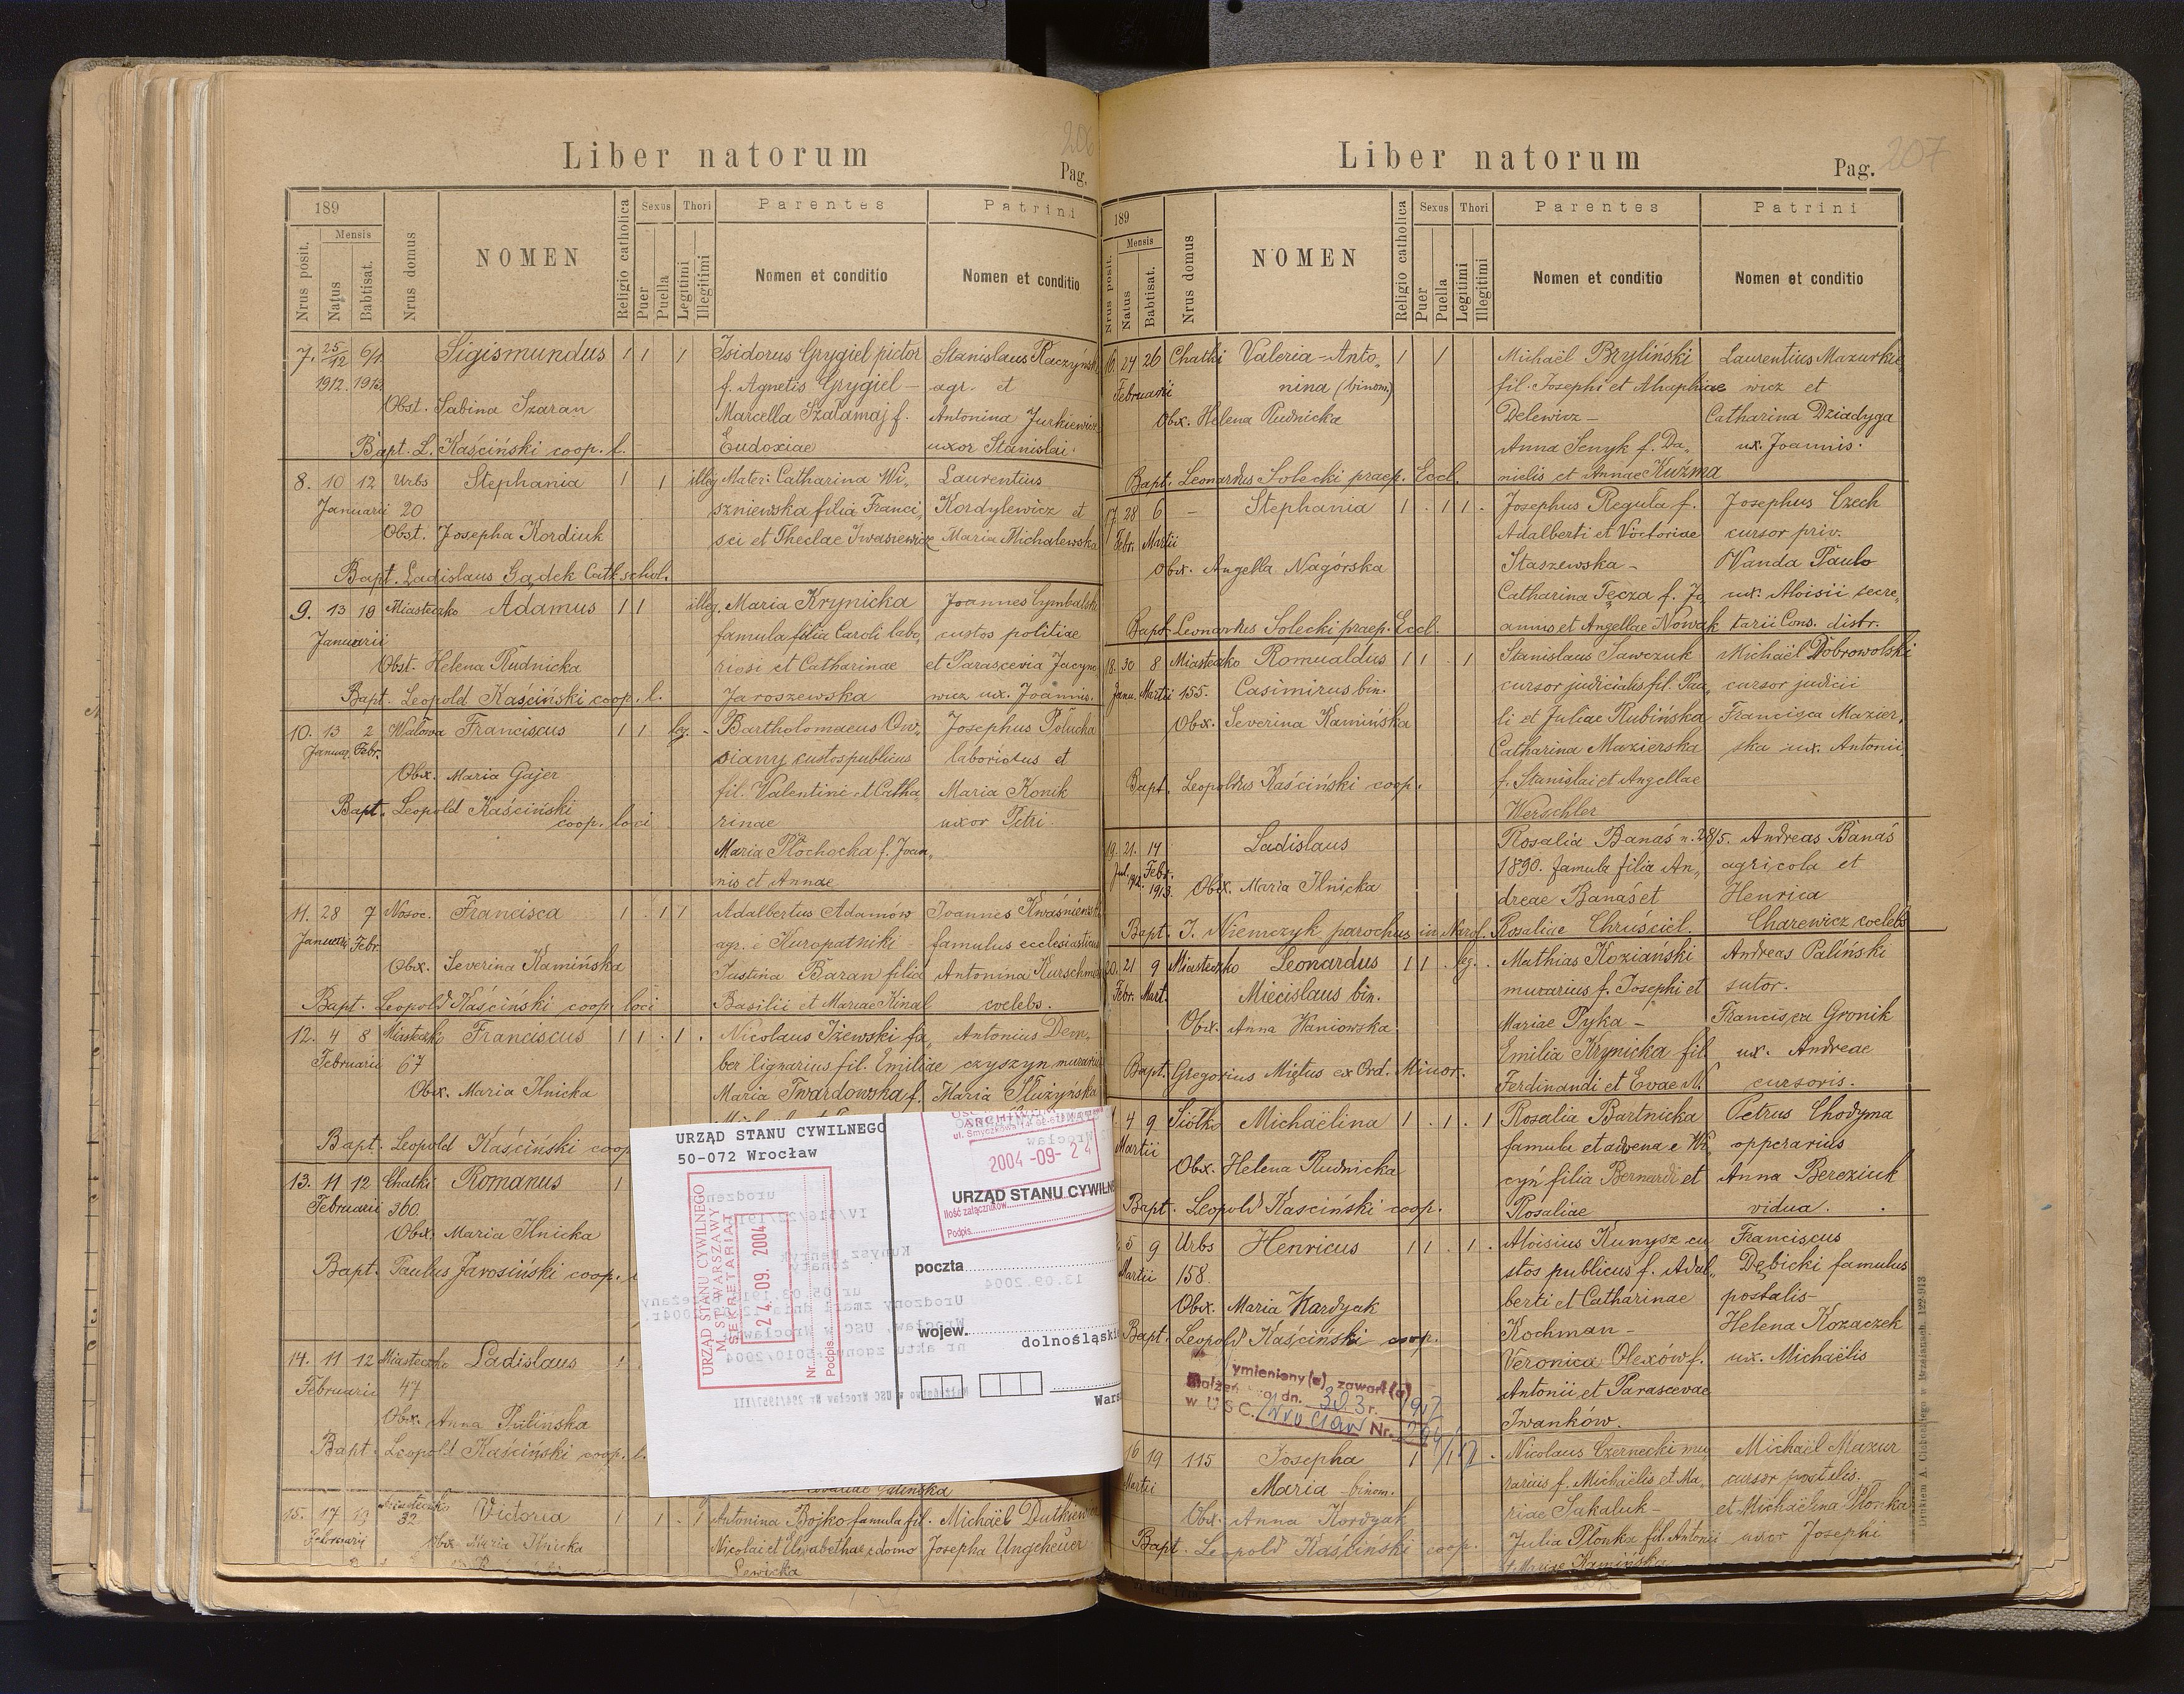 206
Liber natorum
Pag.
189
Mensis
Nrus posit.
Natus
Babtisat.
Nrus domus
NOMEN
Religio catholica
Sexus
Puer
Puella
Thori
Legitimi
Illegitimi
Parentes
Nomen et conditio
Patrini
Nomen et conditio
7. 25/12 6/1 Sigismundus 1 1 1 Isidorus Grygiel pictor Stanislaus Raczyński
1912. 1913. f. Agnetis Grygiel – agr. et
Obst. Sabina Szaran Marcella Szałamaj f. Antonina Jurkiewicz
Bapt. L. Kaściński coop. l. Eudoxiae uxor Stanislai.
8. 10 12 Urbs Stephania 1 1 illeg. Mater: Catharina Wi„ Laurentius
Januarii 20 szniewska filia Franci„ Kordylewicz et
Obst. Josepha Kordiuk sci et Theclae Iwasiewicz Maria Michalewska
Bapt. Ladislaus Gądek Cath. schol.
9. 13 19 Miasteczko Adamus 1 1 illeg. Maria Krynicka Joannes Cymbalski
Januarii famula filia Caroli labo„ custos politiae
Obst. Helena Rudnicka riosi et Catharinae et Parascevia Jacyno
Bapt. Leopold Kaściński coop. l. Jaroszewska wicz ux. Joannis.
10. 13 2 Walowa Franciscus 1 1 leg. - Bartholomaeus Ow„ Josephus Połucha
Januar. Febr. siany custos publicus laboriosus et
Obx. Maria Gajer fil. Valentini et Catha„ Maria Konik
Bapt. Leopold Kaściński rinae uxor Petri
coop. loci
Maria Płochocka f. Joan„
nis et Annae
11. 28 7 Nosoc. Francisca 1 . 1 1 Adalbertus Adamów Joannes Kwaśniewski
Januarii Febr. agr. e Kuropatniki famulus ecclesiasticus
Obx. Severina Kamińska Justina Baran filia Antonina Kurschmer
Bapt. Leopold Kaściński coop. loci Basilii et Mariae Kinal coelebs.
12. 4 8 Miasteczko Franciscus 1 1 . 1 . Nicolaus Iżewski fa„ Antonius Dem„
Februarii 67 ber lignarius fil. Emiliae czyszyn murarius
Obx. Maria Ilnicka Maria Twardowska f. Maria Służyńska
Bapt. Leopold Kaściński coop
13. 11 12 Chatki Romanus 1
Februarii 360.
Obx. Maria Ilnicka
Bapt. Paulus Jarosiński coop.
14. 11 12 Miasteczko Ladislaus 1
Februarii 47
Obx. Anna Pulińska
Bapt. Leopold Kaściński coop. l.
15. 17 19 Miasteczko Victoria 1 . 1 . 1 Antonina Bojko famula fil. Michaël Dutkiewicz
Februarii 32 Obx. Maria Ilnicka Nicolai et Elisabethae e domo Josepha Ungeheuer
Lewicka
URZĄD STANU CYWILNEGO
50-072 Wrocław
URZĄD STANU CYWILNEGO
M. ST. WARSZAWY
SEKRETARIAT
24. 09. 2004
Nr
Podpis
2004 -09- 24
URZĄD STANU CYWILNE
Ilość załączników
Podpis
poczta
wojew.
dolnośląski
Warsz
207
Liber natorum
Pag.
189
Mensis
Nrus posit.
Natus
Babtisat.
Nrus domus
NOMEN
Religio catholica
Sexus
Puer
Puella
Thori
Legitimi
Illegitimi
Parentes
Nomen et conditio
Patrini
Nomen et conditio
16. 24 26 Chatki Valeria-Anto„ 1 1 Michaël Bryliński Laurentius Mazurkie
Februarii nina (binom) fil. Josephi et Ahaphiae wicz et
Obx. Helena Rudnicka Delewicz – Catharina Dziadyga
Anna Senyk f. Da„ ux. Joannis.
Bapt. Leonardus Solecki praep. Eccl. nielis et Annae Kuźma
17. 28 6 – Stephania 1 . 1 1 . Josephus Reguła f. Josephus Czech
Febr. Martii Adalberti et Victoriae cursor priv.
Obx. Angella Nagórska Staszewska – Wanda Paulo
Catharina Tęcza f. Jo„ ux. Aloisii secre„
Bapt. Leonardus Solecki praep. Eccl. annis et Angellae Nowak tarii Cons. distr.
18. 30 8 Miasteczko Romualdus 1 1 . 1 Stanislaus Sawczuk Michaël Dobrowolski
Janu. Martii 155. Casimirus bin. cursor judicialis fil. Pau„ cursor judicii
Obx. Severina Kamińska li et Juliae Rubińska Francisca Mazier„
Catharina Mazierska ska ux. Antonii
Bapt. Leopoldus Kaściński coop. f. Stanislai et Angellae
Werschler
19. 21. 14 Ladislaus Rosalia Banaś n. 28/5. Andreas Banaś
Jul. 1912. Febr. 1913. 1890. famula filia An„ agricola et
Obx. Maria Ilnicka dreae Banaś et Henrica
Bapt. J. Niemczyk parochus in Narol. Rosaliae Chruściel. Charewicz coelebs
20. 21 9 Miasteczko Leonardus 1 1 . leg. . Mathias Koziański Andreas Paliński
Febr. Mart. Miecislaus bin. murarius f. Josephi et sutor.
Obx. Anna Haniowska Mariae Pyka – Francisca Gronik
Emilia Krynicka fil ux. Andreae
Bapt. Gregorius Miętus ex Ord. Minor. Ferdinandi et Evae N. cursoris.
4 9 Siółko Michaëlina 1 . 1 . 1 Rosalia Bartnicka Petrus Chodyma
Martii famula et advena e Wi„ opperarius
Obx. Helena Rudnicka cyń filia Bernardi et Anna Bereziuk
Bapt. Leopold Kaściński coop. Rosaliae vidua.
5 9 Urbs Henricus 1 1 . 1 . Aloisius Kunysz cu Franciscus
Martii 158. stos publicus f. Adal„ Dębicki famulus
Obx. Maria Kardyak berti et Catharinae postalis –
Bapt. Leopold Kaściński coop. Kochman – Helena Kozaczek
Veronica Olexów f. ux. Michaëlis
Antonii et Parascevae
Iwanków.
ymieniony(a) zawarł(a)
małżeń dn. 30.3 r. 1957
w USC. Wrocław Nr.
16 19 115 Josepha 1 Nicolaus Czernecki mu„ Michaël Mazur
Martii Maria – binom. rarius f. Michaëlis et Ma„ cursor postalis.
Obx. Anna Kordyak riae Sakaluk – et Michaëlina Płonka
Bapt. Leopold Kaściński coop. Julia Płonka fil. Antonii uxor Josephi
et Mariae Kamińska